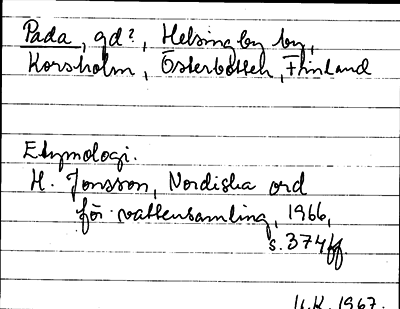 Pada, gd?, Helsingby by,
Korsholm, Österbotten, Finland
Etymologi.
H. Jonsson, Nordiska ord
för vattensamling, 1966,
s. 374 ff
U.K. 1967.